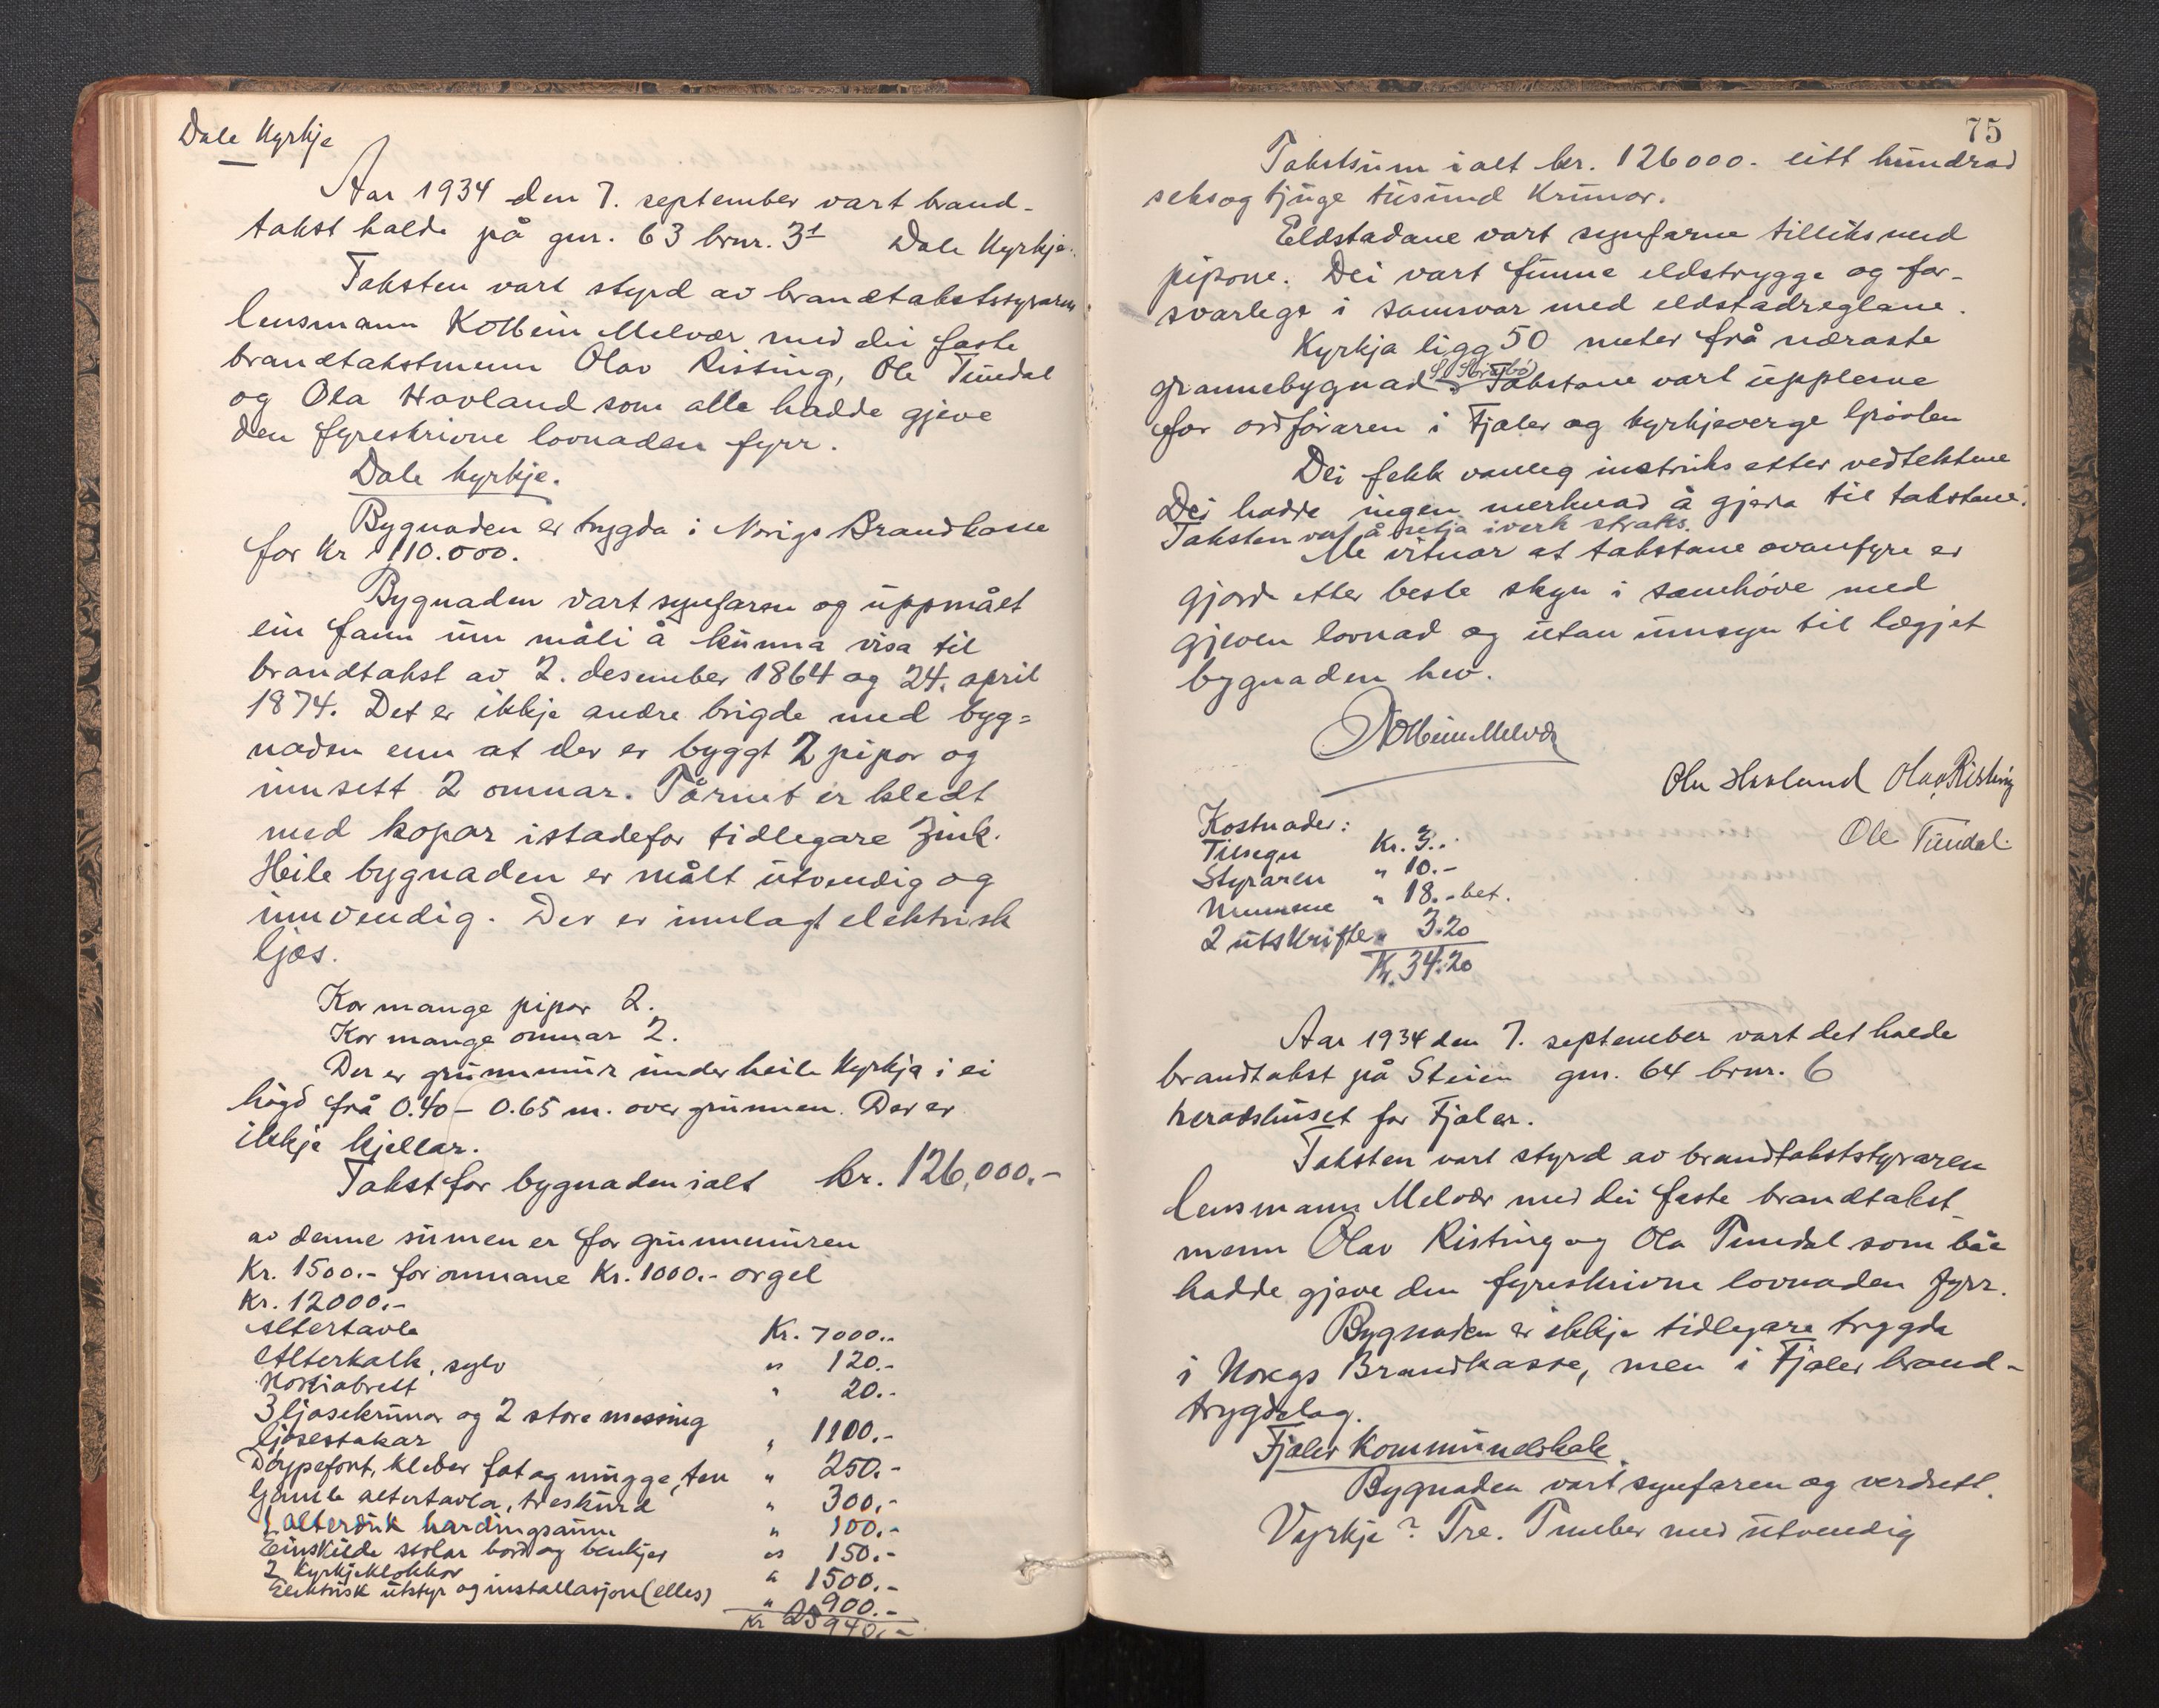 Dale Kyrkje
Aar 1934 den 7. september vart brand-
takst halde på gnr. 63 brnr. 31 Dale Kyrkje.
Taksten vart styrd av brandtakststyraren
lensmann Kolbein Melvær med dei faste
brandtakstmenn Olav Risting, Ole Tundal
og Ola Hovland som alle hadde gjeve
den fyreskrivne lovnaden fyrr.
Dale kyrkje.
Bygnaden er trygda i Norigs Brandkasse
for Kr 110.000.
Bygnaden vart synfaren og uppmålt
ein fann um måli å kunna visa til
brandtakst av 2. desember 1864 og 24. april
1874. Det er ikkje andre brigde med byg=
naden enn at der er byggt 2 pipor og
innsett 2 omnar. Tårnet er kledt
med kopar istadefor tidlegare Zink.
Heile bygnaden er målt utvendig og
innvendig. Der er innlagt elektrisk
ljos.
Kor mange pipor 2.
Kor mange omnar 2.
Der er grunnmur under heile Kyrkja i ei
högd frå 0.40 - 0.65 m. over grunnen. Der er
ikkje kjellar.
Takst for bygnaden ialt kr. 126,000.-
av denne sumen er for grunnmuren
Kr. 1500.- for omnane Kr. 1000.- orgel
Kr. 12000.-
Altertavle Kr. 7000.-
Alterkalk, sylv " 120.-
Hostiabrett " 20.-
3 ljosekrunor og 2 store messing
ljosestakar " 1100.-
Döypefont, kleber fat og mugge, tenn " 250.-
Gamle altertavla, treskurd " 300.-
1 alterduk hardingsaum " 100.-
Einskilde stolar bord og benkjer " 150.-
2 Kyrkjeklokkor " 1500.-
Elektrisk utstyr og installasjon (elles) " 900.-
Kr 23940.-
75
Takstsum ialt kr. 126000.- eitt hundrad
seksog tjuge tusund Krunor.
Eldstadane vart synfarne tilliks med
pipone. Dei vart funne eldstrygge og for-
svarlege i samsvar med eldstadreglane.
Kyrkja ligg 50 meter frå næraste
grannebygnad. Takstane vart upplesne
for ordföraren i Fjaler og kyrkjeverge
Dei fekk vanleg instruks etter vedtektene
Dei hadde ingen merknad å gjera til takstane.
Taksten vert å setja iverk straks.
Me vitnar at takstane ovanfyre er
gjord etter beste skyn i samhöve med
gjeven lovnad og utan umsyn til lægjet
bygnaden hev.
Kolbein Melvær
Ola Hovland Olav Risting
Ole Tundal.
Kostnader:
Tilsegn Kr. 3.-
Styraren " 10.-
Mennene " 18.- bet.
2 utskrifter " 3.20
Kr. 34.20
Aar 1934 den 7. september vart det halde
brandtakst på Steien gnr. 64 brnr. 6
heradshuset for Fjaler.
Taksten vart styrd av brandtakststyraren
lensmann Melvær med dei faste brandtakst-
menn Olav Risting og Ola Tundal som båe
hadde gjeve den fyreskrivne lovnaden fyrr.
Bygnaden er ikkje tidlegare trygda
i Noregs Brandkasse, men i Fjaler brand-
trygdelag.
Fjaler Kommunelokale
Bygnaden vart synfaren og verdsett.
Vyrkje? Tre. Timber med utvendig